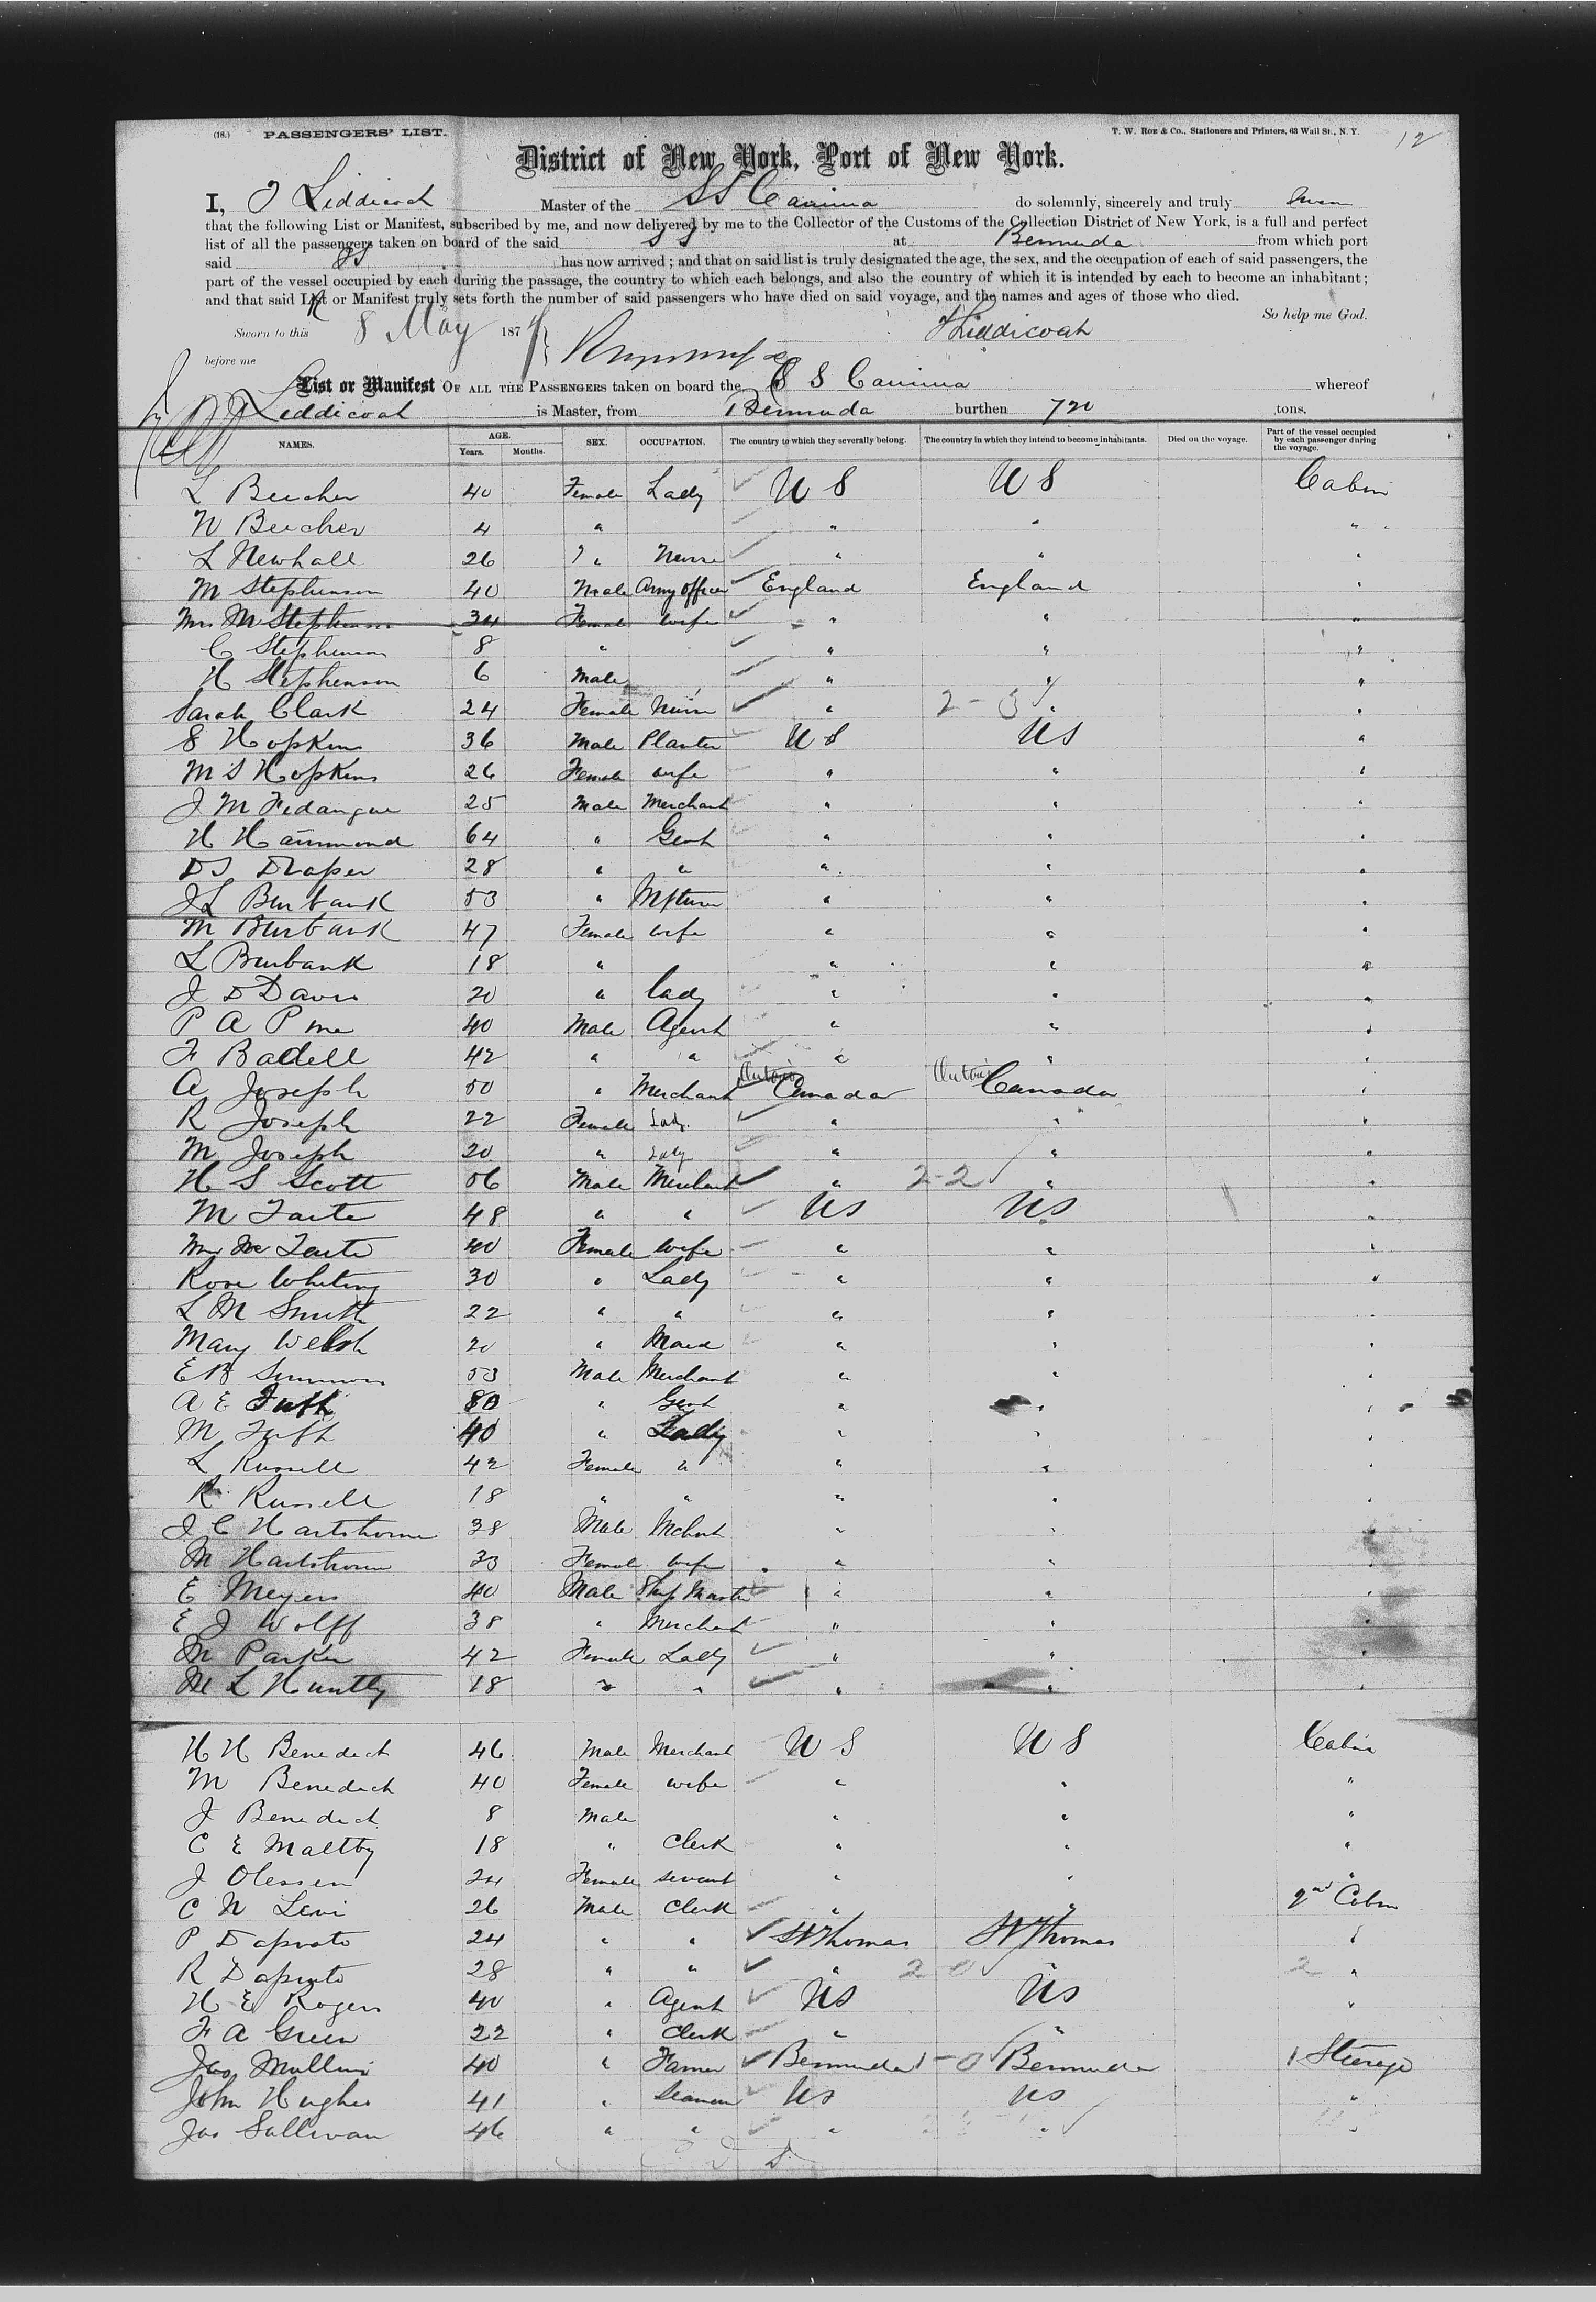 (18.) PASSENGERS' LIST. T. W. ROE & Co., Stationers and Printers, 63 Wall St., N. Y. 12
District of New York, Port of New York.
I, J Liddicoat Master of the SS Canima do solemnly, sincerely and truly Swear
that the following List or Manifest, subscribed by me, and now delivered by me to the Collector of the Customs of the Collection District of New York, is a full and perfect
list of all the passengers taken on board of the said SS at Bermuda from which port
said SS has now arrived; and that on said list is truly designated the age, the sex, and the occupation of each of said passengers, the
part of the vessel occupied by each during the passage, the country to which each belongs, and also the country of which it is intended by each to become an inhabitant;
and that said List or Manifest truly sets forth the number of said passengers who have died on said voyage, and the names and ages of those who died.
So help me God.
Sworn to this 8 May 187 JLiddicoat
before me
List or Manifest OF ALL THE PASSENGERS taken on board the S S Canima whereof
J Liddicoat is Master, from Bermuda burthen 720 tons.
NAMES. AGE. Years. Months. SEX. OCCUPATION. The country to which they severally belong. The country in which they intend to become inhabitants. Died on the voyage. Part of the vessel occupied by each passenger during the voyage.
L Beecher 40 Female Lady U S U S Cabin
N Beecher 4 " " " "
L Newhall 26 " Nurse " " "
M Stephenson 40 Male Army Officer England England "
Mrs M Stephenson 34 Female wife " " "
C Stephenson 8 " " " "
H Stephenson 6 Male " " "
Sarah Clark 24 Female Nurse " 2-3 " "
S Hopkins 36 Male Planter U S US "
M S Hopkins 26 Female wife " " "
J M 25 Male Merchant " " "
H Hammond 64 " Gent " " "
D S Draper 28 " " " " "
J L Burbank 53 " Mfturer " " "
M Burbank 47 Female wife " " "
L Burbank 18 " " " "
J D Davis 20 " Lady " " "
P A 40 Male Agent " " "
F Badell 42 " " " " "
A Joseph 50 " Merchant Ontario Canada Ontario Canada "
R Joseph 22 Female Lady " " "
M Joseph 20 " Lady " " "
H S Scott 56 Male Merchant " 2-2 " "
M 48 " " US US "
Mrs M 40 Female wife " " "
Rose Whiting 30 " Lady " " "
L M Smith 22 " " " " "
Mary Welsh 20 " Maid " " "
E B Simmons 53 Male Merchant " " "
A E Tufft 80 " Gent " " "
M Tufft 40 " Lady " " "
L Russell 42 Female " " " "
R Russell 18 " " " " "
J C Hartshorne 38 Male Mchant " " "
M Hartshorne 33 Female wife " " "
E Meyers 40 Male Ship Master " " "
E J Wolff 38 " Merchant " " "
M Parker 42 Female Lady " " "
M L Huntly 18 " " " " "
H H Benedict 46 Male Merchant U S U S Cabin
M Benedict 40 Female wife " " "
J Benedict 8 Male " " "
C E Maltby 18 " Clerk " " "
J Olessen 24 Female servant " " "
C N Levi 26 Male Clerk " " 2nd Cabin
P Daprato 24 " " St Thomas St Thomas "
R Daprato 28 " " " 2 0 " 2 "
H E Rogers 40 " Agent US US "
F A Green 22 " Clerk " " "
Jas Mullins 40 " Farmer Bermuda 1-0 Bermuda 1 Steerage
John Hughes 41 " Seaman US US "
Jas Sullivan 46 " " " " "